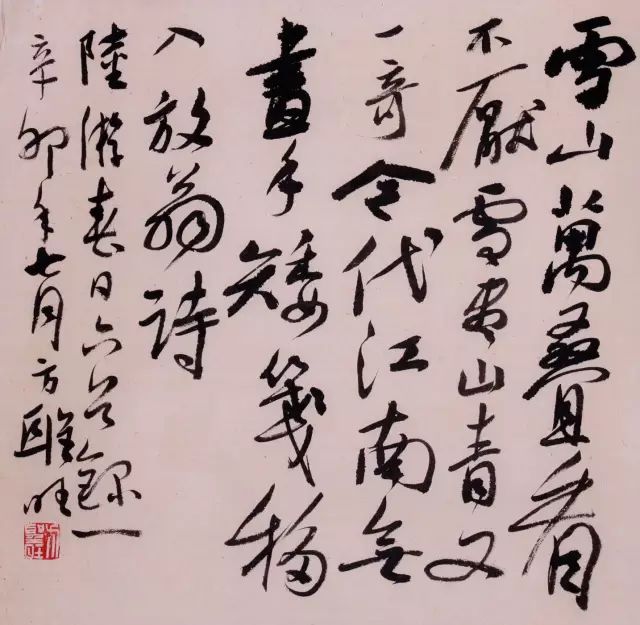 雪山萬疊看
不厭雪盡山青又
一奇今代江南無
畫手矮箋移
入放翁詩
陸游春日六首錄一
辛卯年七月方